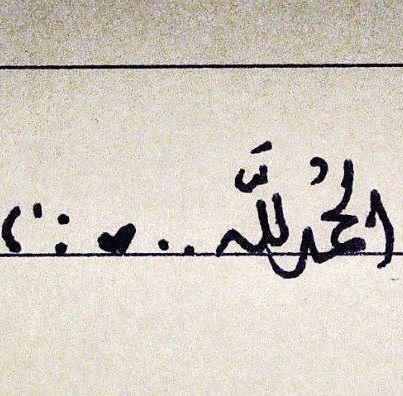 الحمُدلله .. ♥ :')